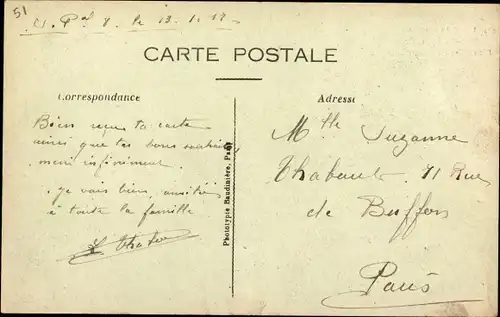 51
le 13.1.17
CARTE POSTALE
Correspondance
Adresse
Bien reçu ta carte
ainsi que tes bons souhaits
merci infiniment
je vais bien, amitiés
à toute la famille
Phototypie Baudinière, Paris
Mlle Suzanne
71 Rue
de Buffon
Paris